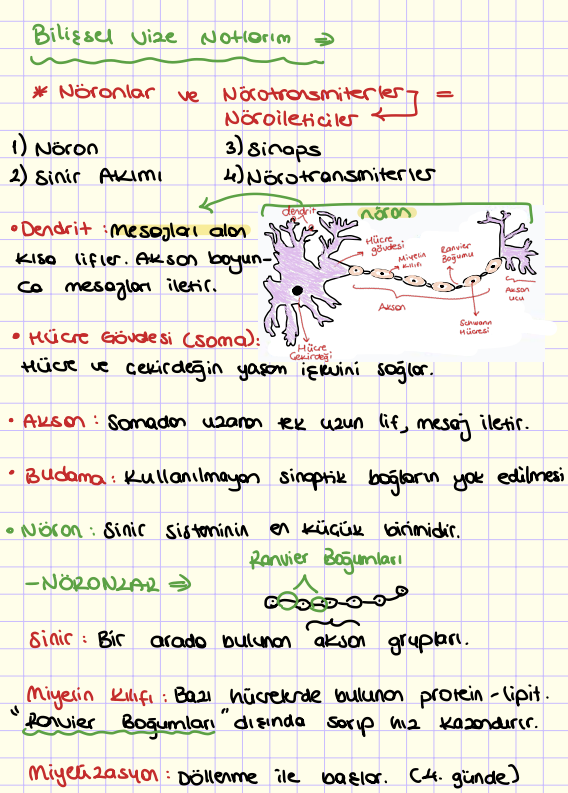 Bilişsel Vize Notlarım ⇒
* Nöronlar ve Nörotransmiterler =
Nöroileticiler
1) Nöron 3) Sinaps
2) Sinir Akımı 4) Nörotransmiterler
nöron
dendrit
Hücre gövdesi
Miyelin kılıfı
Ranvier Boğumu
Akson
Akson ucu
Schwann Hücresi
Hücre Çekirdeği
• Dendrit : Mesajları alan
kısa lifler. Akson boyun-
ca mesajları iletir.
• Hücre Gövdesi (Soma):
Hücre ve çekirdeğin yaşam işlevini sağlar.
• Akson : Somadan uzanan tek uzun lif, mesaj iletir.
• Budama : Kullanılmayan sinaptik bağların yok edilmesi
• Nöron : Sinir sisteminin en küçük birimidir.
Ranvier Boğumları
- NÖRONLAR ⇒
Sinir : Bir arada bulunan akson grupları.
Miyelin Kılıfı : Bazı hücrelerde bulunan protein - lipit.
"Ranvier Boğumları" dışında sarıp hız kazandırır.
Miyelizasyon : Döllenme ile başlar. (4. günde)